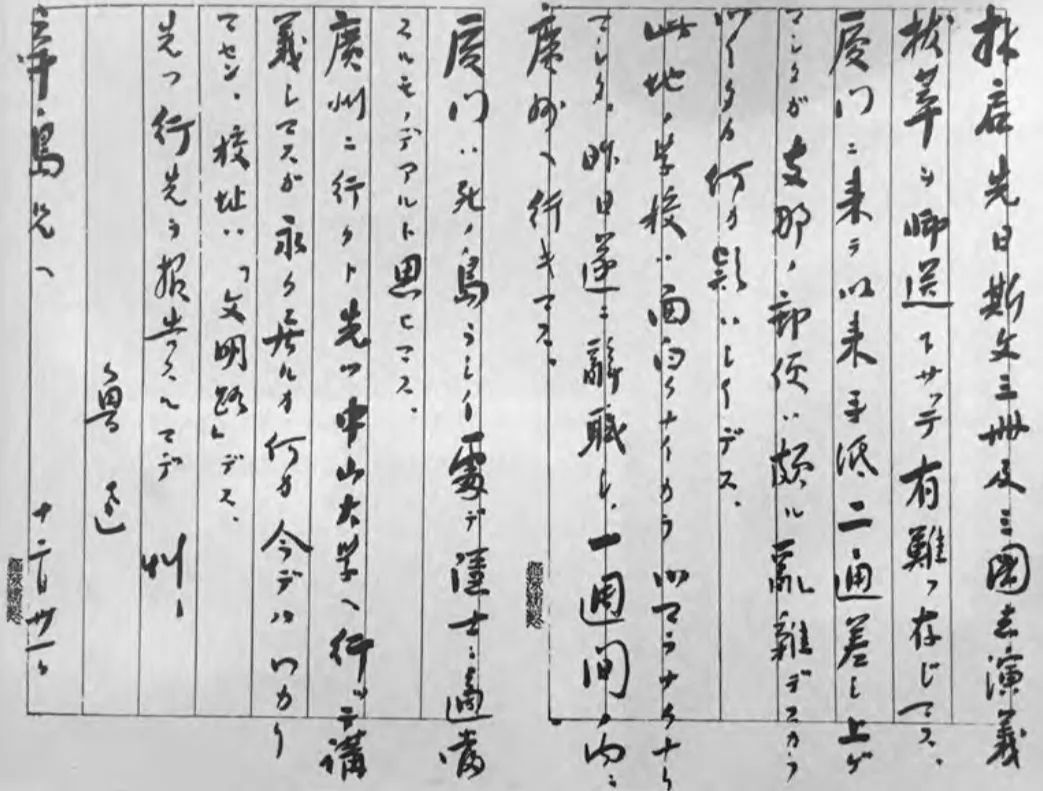 拝啓先日斯文三冊及三國志演義
抜萃ヲ御送下サッテ有難ク存じマス、
厦門ニ来テ以来手紙二通差し上ゲ
マシタガ支那ノ郵便ハ頗ル乱雑デスカラ
ツイタカ何カ疑ハしイデス、
此地ノ学校ハ面白クナイカラツマラナクナリ
マシタ、昨日遂ニ辞職し、一週間ノ内ニ
廣州ヘ行キマス。
厦門ハ死ノ島ラしイ處デ隱士ニ適當
スルモノデアルト思ヒマス、
廣州ニ行クト先ヅ中山大学ヘ行ッテ講
義しマスガ永ク居ルカ何カ今デハワカリ
マセン、校址ハ「文明路」デス、
先ツ行先ヲ報告スルマデ 艸々
魯迅
辛島兄ヘ 十二月卅一日